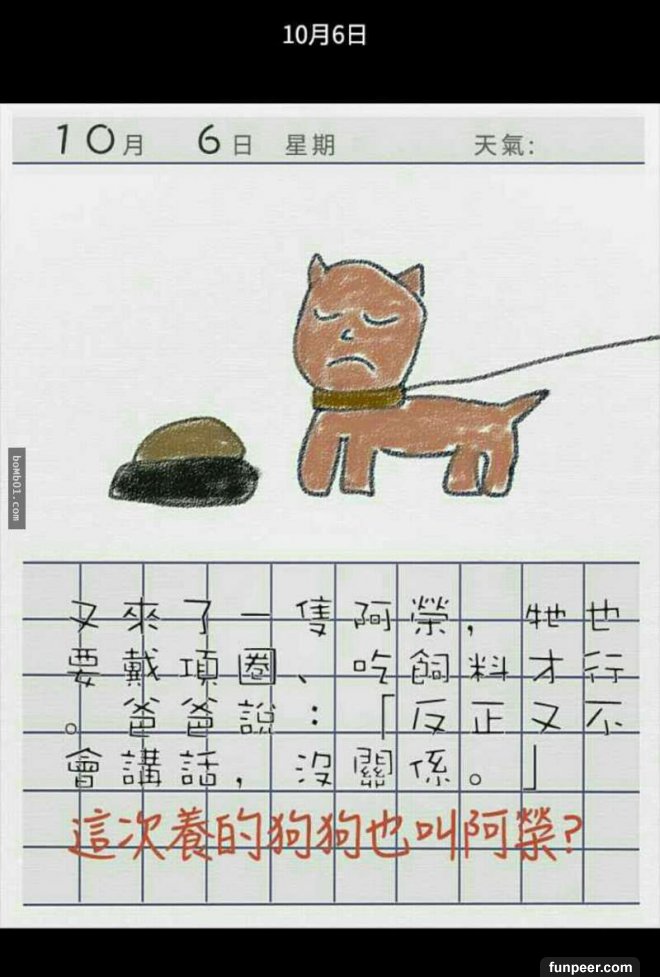 10月6日
10月 6日 星期 天氣:
boMb01.com
又來了一隻阿榮，牠也
要戴項圈、吃飼料才行
。爸爸說：「反正又不
會講話，沒關係。」
這次養的狗狗也叫阿榮?
funpeer.com